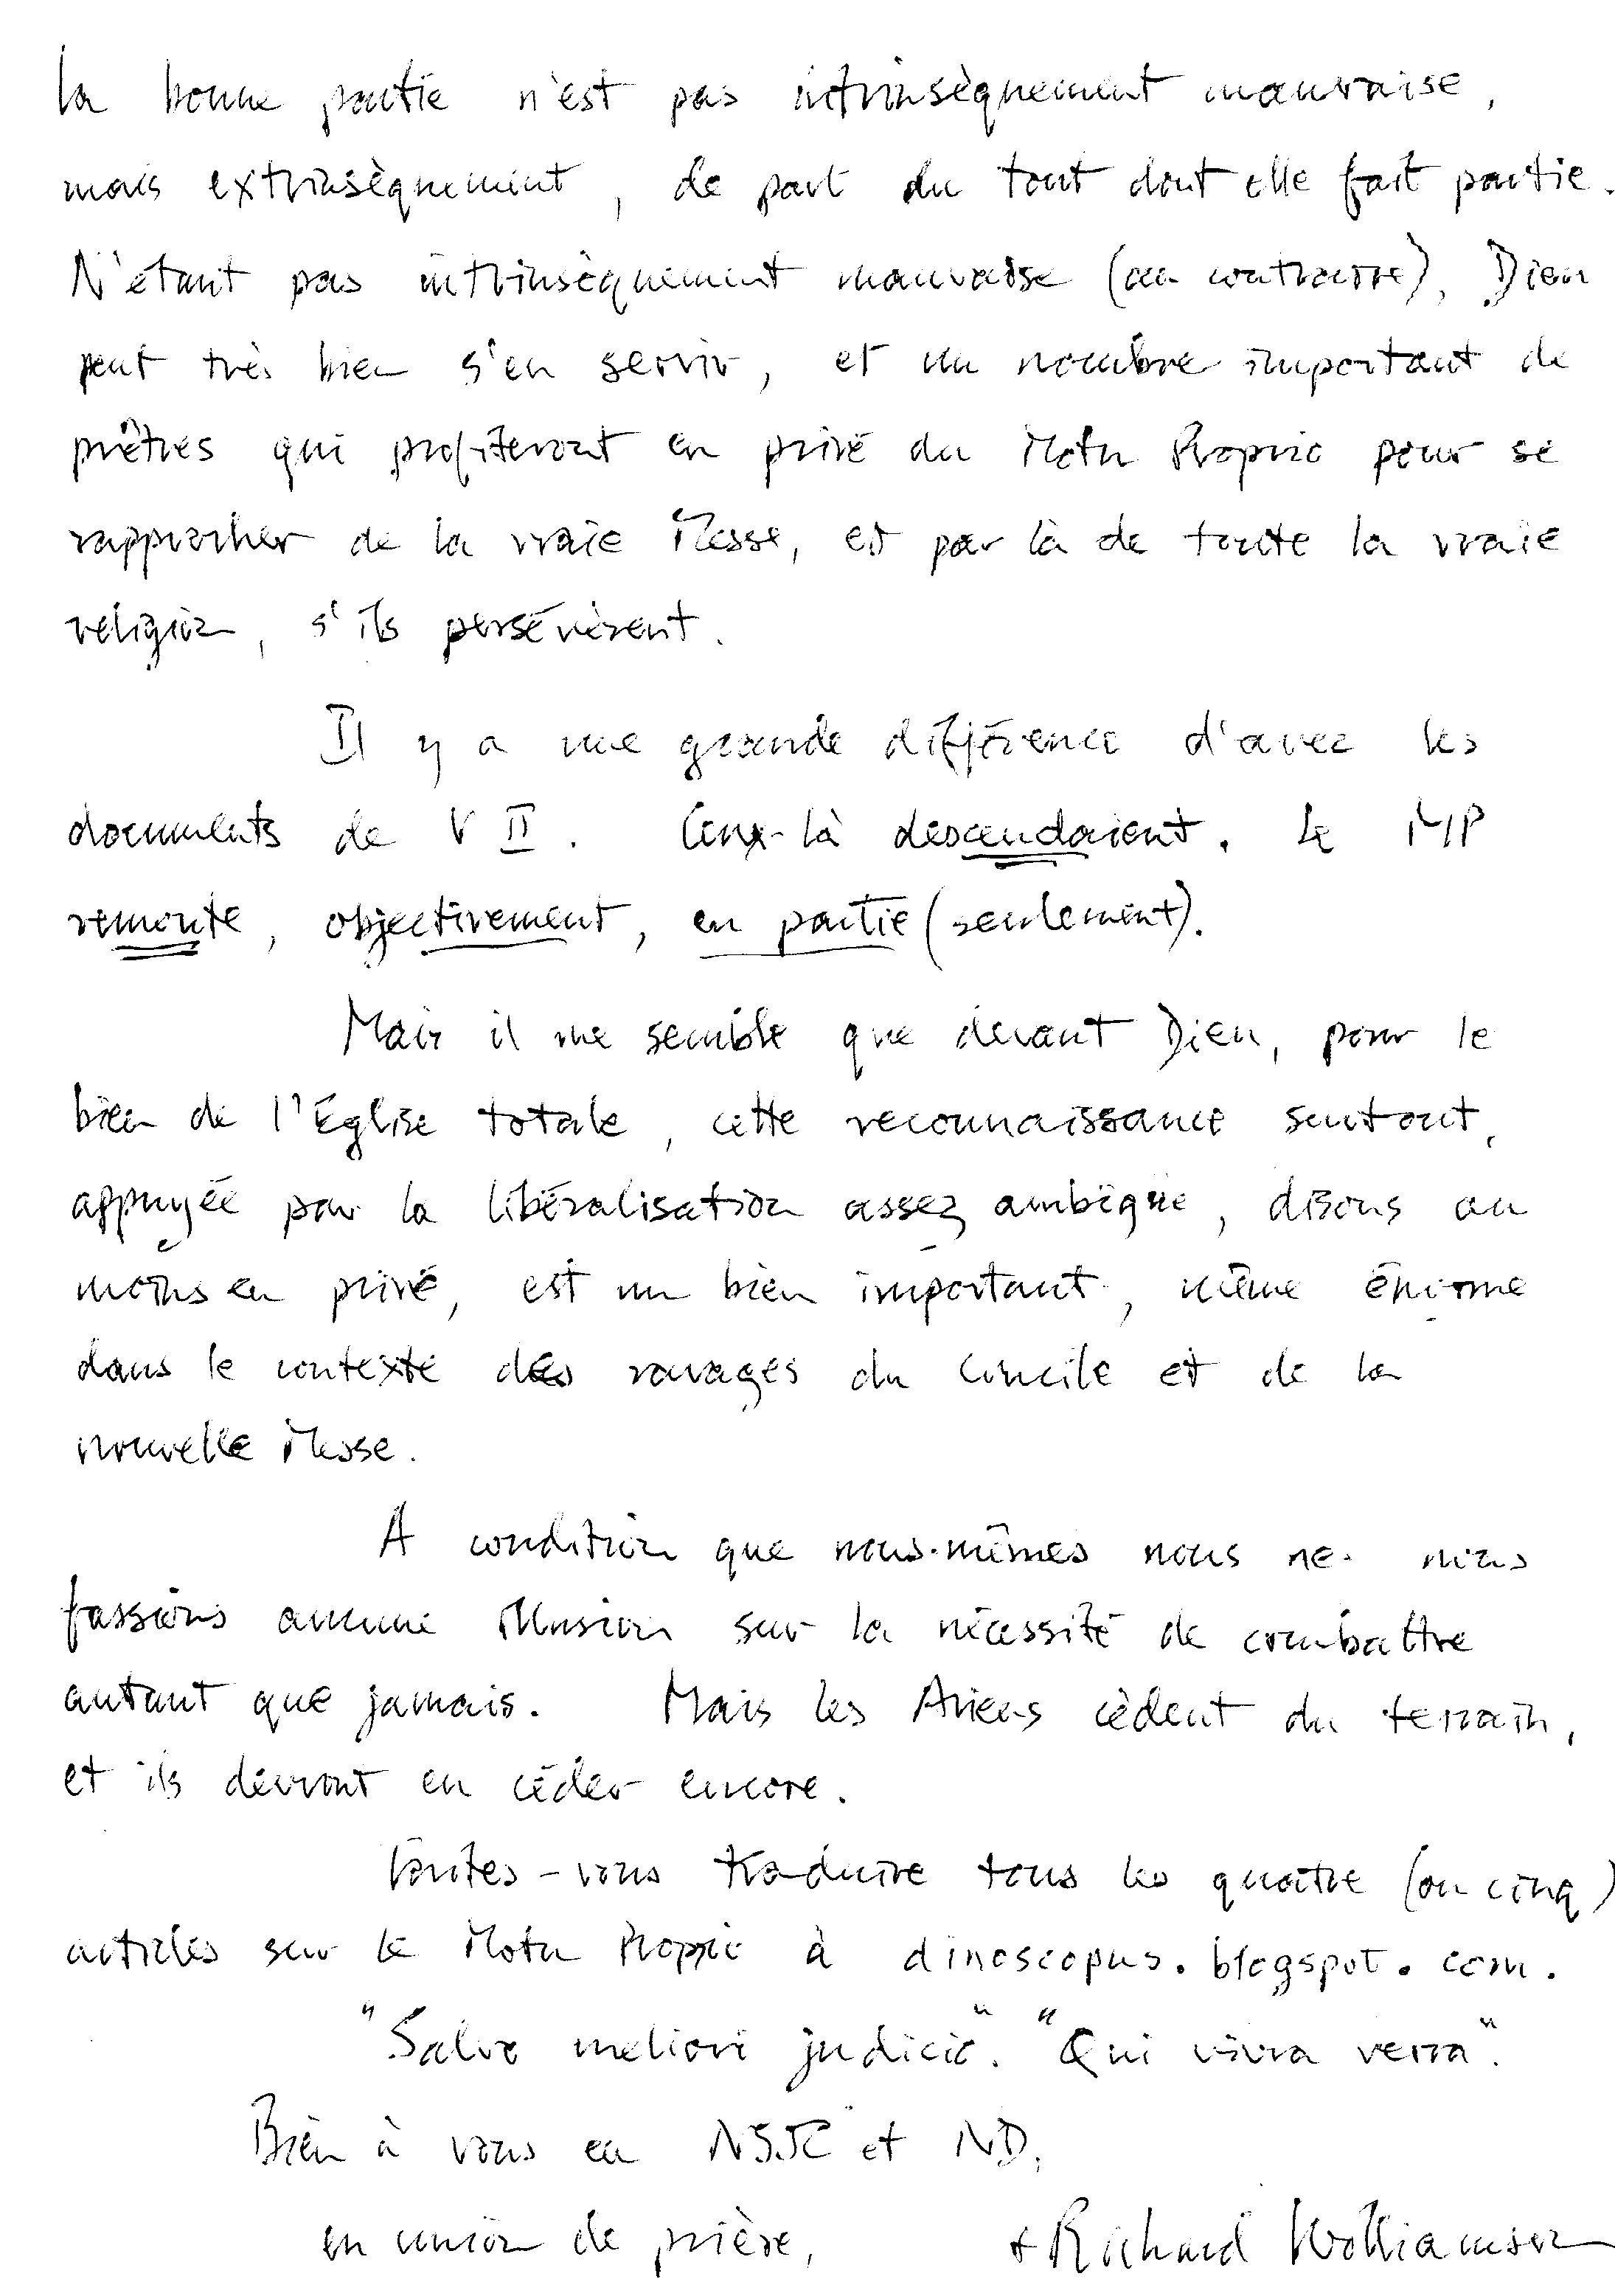 la bonne partie n'est pas intrinsèquement mauvaise,
mais extrinsèquement, de part du tout dont elle fait partie.
N'étant pas intrinsèquement mauvaise (au contraire), Dieu
peut très bien s'en servir, et un nombre important de
prêtres qui profiteront en privé du Motu Proprio pour se
rapprocher de la vraie Messe, et par là de toute la vraie
religion, s'ils persévèrent.
Il y a une grande différence d'avec les
documents de V II. Ceux-là descendaient. Le MP
remonte, objectivement, en partie (seulement).
Mais il me semble que devant Dieu, pour le
bien de l'Église totale, cette reconnaissance surtout,
appuyée par la libéralisation assez ambigüe, disons au
moins en privé, est un bien important, même énorme
dans le contexte des ravages du Concile et de la
nouvelle Messe.
A condition que nous-mêmes nous ne nous
fassions aucune illusion sur la nécessité de combattre
autant que jamais. Mais les Ariens cèdent du terrain,
et ils devront en céder encore.
Faites-vous traduire tous les quatre (ou cinq)
articles sur le Motu Proprio à dinoscopus.blogspot.com.
"Salvo meliori judicio". "Qui vivra verra".
Bien à vous en NSJC et ND,
en union de prière, + Richard Williamson